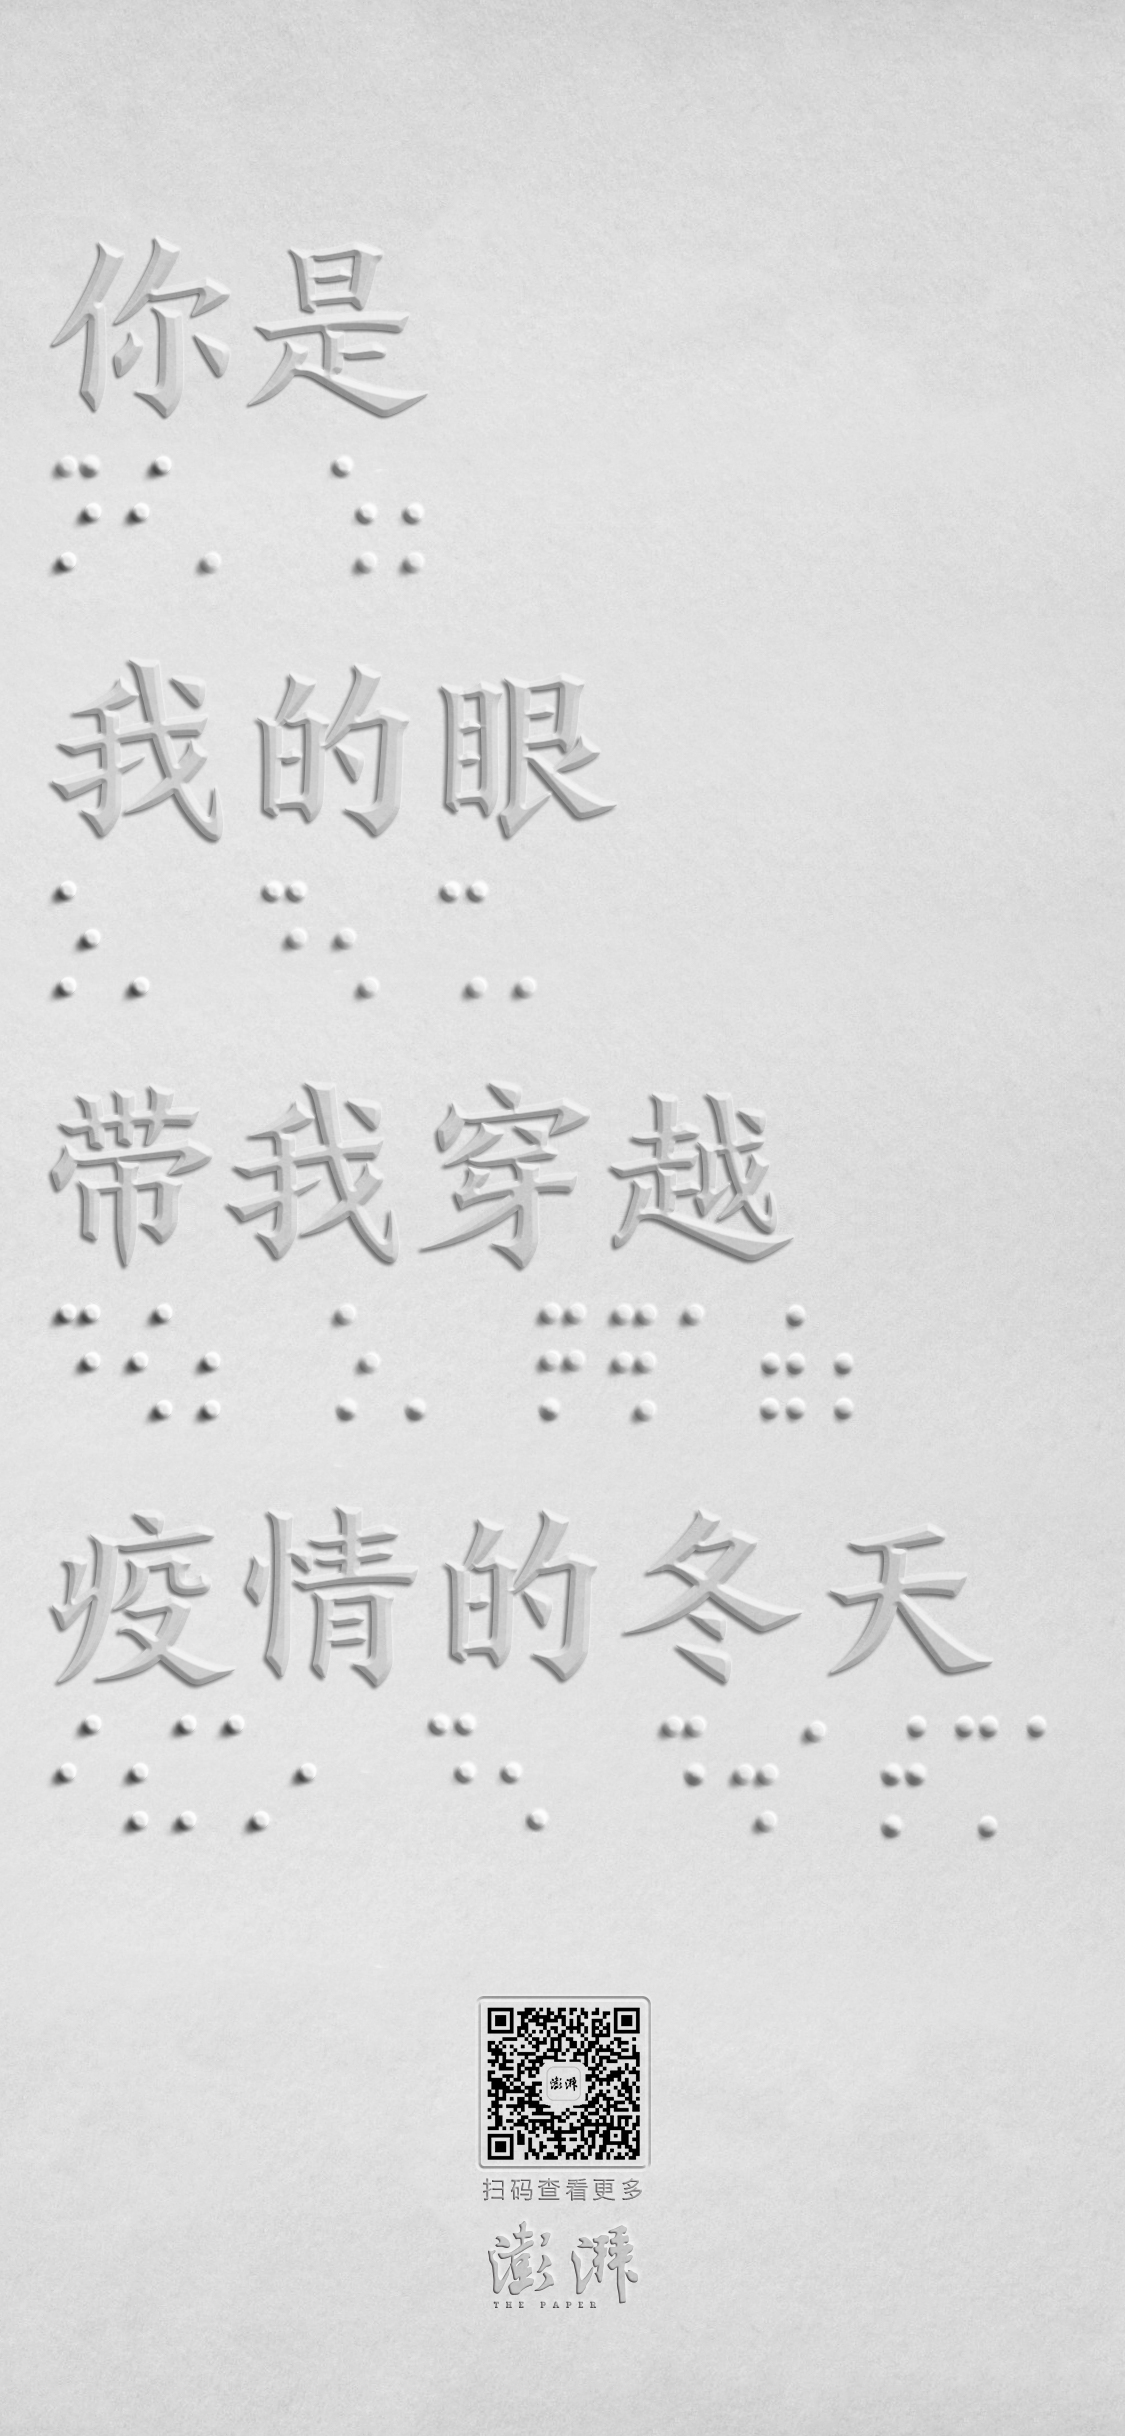 你是
我的眼
带我穿越
疫情的冬天
澎湃
扫码查看更多
澎湃
THE PAPER